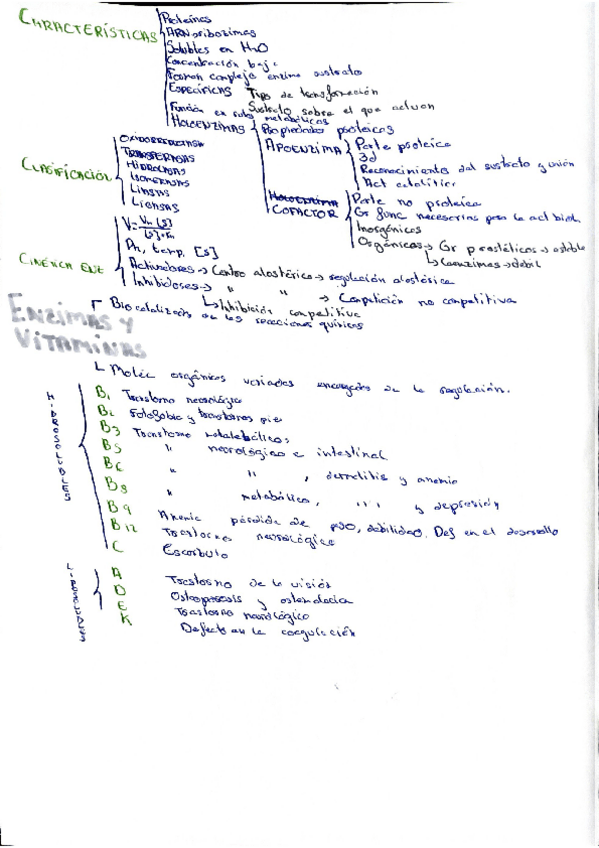 CARACTERÍSTICAS
Proteínas
ARN → ribozimas
Solubles en H2O
Concentración baja
Forman complejo enzima sustrato
ESPECÍFICAS Tipo de transformación
Sustrato sobre el que actúan
Función en rutas metabólicas
HOLOENZIMAS Propiedades proteicas
APOENZIMA Parte proteica
3d
Reconocimiento del sustrato y unión
Act catalítica
HOLOENZIMA
COFACTOR Parte no proteica
Gr func necesarios para la act biol.
Inorgánicos
Orgánicos → Gr prostéticos → estable
↳ Coenzimas → débil
CLASIFICACIÓN
OXIDORREDUCTASA
TRANSFERASAS
HIDROLASAS
ISOMERASAS
LIASAS
LIGASAS
CINÉTICA
V = Vm [S] / [S] + Km
Ph, temp, [S]
Activadores → Centro alostérico → regulación alostérica
Inhibidores → " " → Competición no competitiva
↳ Inhibición competitiva
ENZIMAS Y VITAMINAS
Biocatalizadores de las reacciones químicas
Moléc orgánicas variadas encargadas de la regulación.
HIDROSOLUBLES
B1 Trastorno neurológico
B2 Fotofobia y trastornos piel
B3 Trastorno
B5 " neurológico e intestinal
B6 " " , dermatitis y anemia
B8 " metabólico, " " y depresión
B9 Anemia pérdida de peso, debilidad. Def en el desarrollo
B12 Trastorno neurológico
C Escorbuto
LIPOSOLUBLES
A Trastorno de la visión
D Osteoporosis y
E Trastorno neurológico
K Defecto en la coagulación